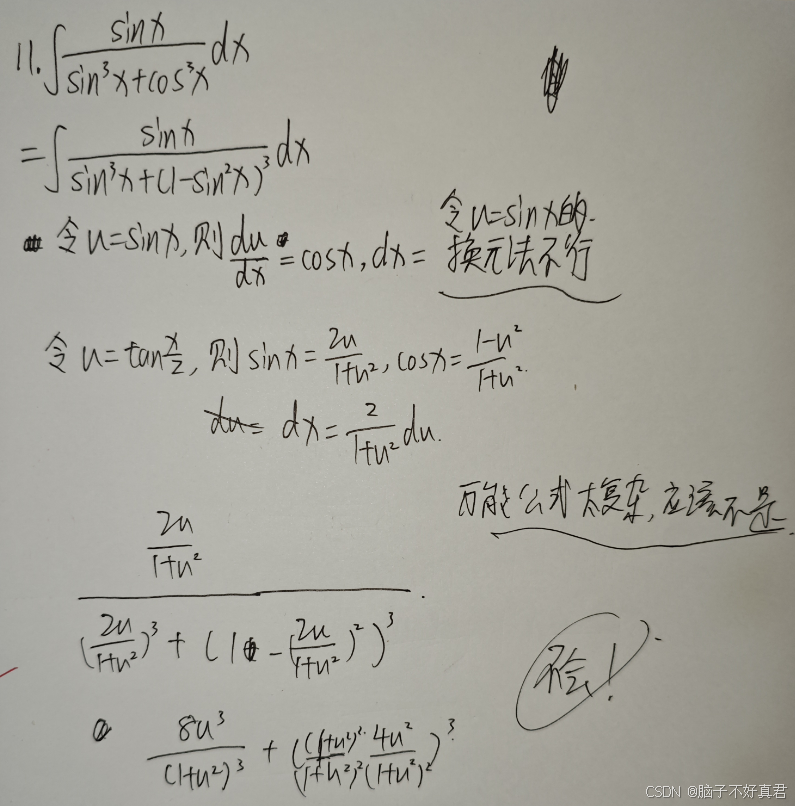 11. ∫ sinx/(sin³x+cos³x) dx
= ∫ sinx/(sin³x+(1-sin²x)³) dx
令u=sinx, 则 du/dx = cosx, dx =
令u=sinx的
换元法不行
令u=tan x/2, 则sinx = 2u/(1+u²), cosx = (1-u²)/(1+u²).
du= dx = 2/(1+u²) du.
万能公式太复杂, 应该不是.
2u/(1+u²)
(2u/(1+u²))³ + (1-(2u/(1+u²))²)³
不会!
8u³/(1+u²)³ + ((1+u²)²/(1+u²)² 4u²/(1+u²)²)³
CSDN @脑子不好真君